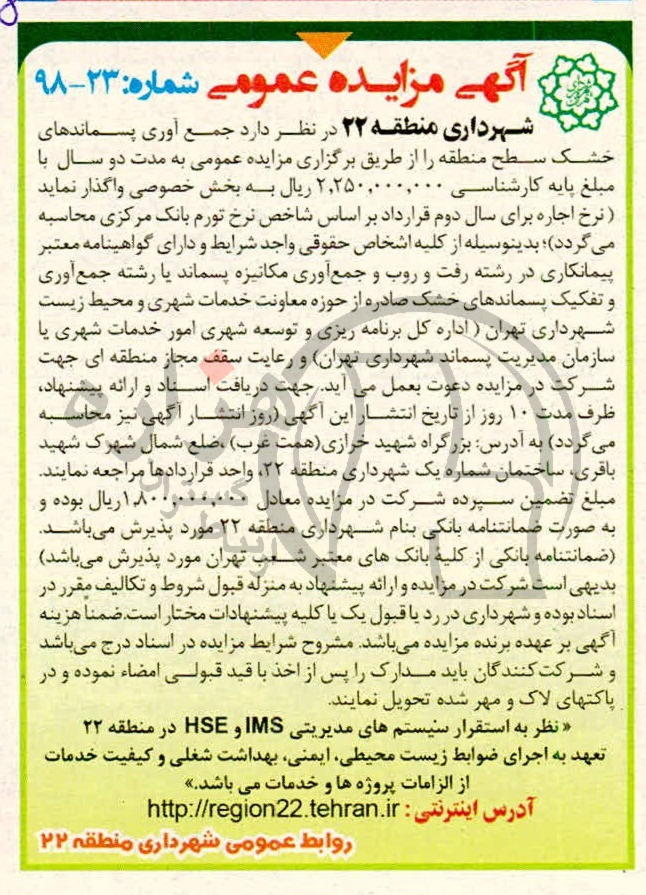 آگهی مزایده عمومی شماره: ۲۳-۹۸
شهرداری منطقه ۲۲ در نظر دارد جمع آوری پسماندهای
خشک سطح منطقه را از طریق برگزاری مزایده عمومی به مدت دو سال با
مبلغ پایه کارشناسی ۲,۲۵۰,۰۰۰,۰۰۰ ریال به بخش خصوصی واگذار نماید
(نرخ اجاره برای سال دوم قرارداد بر اساس شاخص نرخ تورم بانک مرکزی محاسبه
می‌گردد)؛ بدینوسیله از کلیه اشخاص حقوقی واجد شرایط و دارای گواهینامه معتبر
پیمانکاری در رشته رفت و روب و جمع‌آوری مکانیزه پسماند یا رشته جمع‌آوری
و تفکیک پسماندهای خشک صادره از حوزه معاونت خدمات شهری و محیط زیست
شهرداری تهران (اداره کل برنامه ریزی و توسعه شهری امور خدمات شهری یا
سازمان مدیریت پسماند شهرداری تهران) و رعایت سقف مجاز منطقه ای جهت
شرکت در مزایده دعوت بعمل می آید. جهت دریافت اسناد و ارائه پیشنهاد،
ظرف مدت ۱۰ روز از تاریخ انتشار این آگهی (روز انتشار آگهی نیز محاسبه
می‌گردد) به آدرس: بزرگراه شهید خرازی(همت غرب) ،ضلع شمال شهرک شهید
باقری، ساختمان شماره یک شهرداری منطقه ۲۲، واحد قراردادها مراجعه نمایند.
مبلغ تضمین سپرده شرکت در مزایده معادل ۱,۸۰۰,۰۰۰,۰۰۰ریال بوده و
به صورت ضمانتنامه بانکی بنام شهرداری منطقه ۲۲ مورد پذیرش می‌باشد.
(ضمانتنامه بانکی از کلیهٔ بانک های معتبر شعب تهران مورد پذیرش می‌باشد)
بدیهی است شرکت در مزایده و ارائه پیشنهاد به منزله قبول شروط و تکالیف مقرر در
اسناد بوده و شهرداری در رد یا قبول یک یا کلیه پیشنهادات مختار است.ضمناً هزینه
آگهی بر عهده برنده مزایده می‌باشد. مشروح شرایط مزایده در اسناد درج می‌باشد
و شرکت‌کنندگان باید مدارک را پس از اخذ با قید قبولی امضاء نموده و در
پاکتهای لاک و مهر شده تحویل نمایند.
« نظر به استقرار سیستم های مدیریتی IMS و HSE در منطقه ۲۲
تعهد به اجرای ضوابط زیست محیطی، ایمنی، بهداشت شغلی و کیفیت خدمات
از الزامات پروژه ها و خدمات می باشد.»
آدرس اینترنتی : http://region22.tehran.ir
روابط عمومی شهرداری منطقه ۲۲